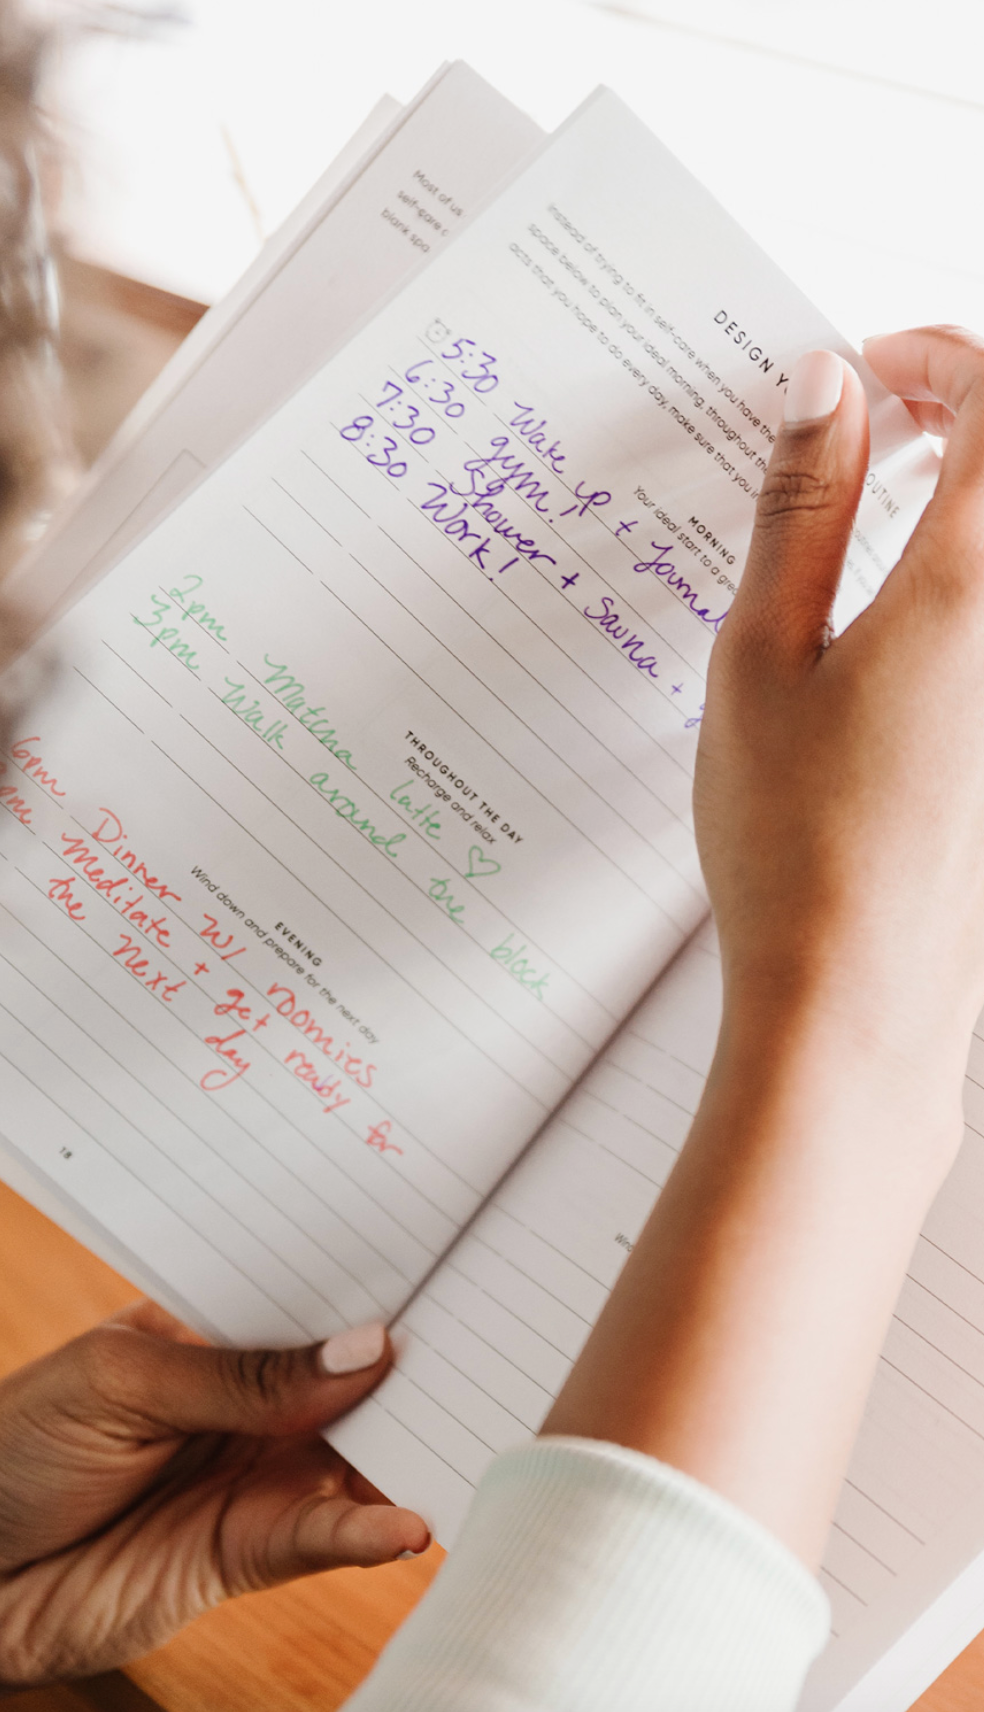 Most of us
self-care
blank spa
DESIGN Y
OUTINE
Instead of trying to fit in self-care when you have the
space below to plan your ideal morning, throughout th
acts that you hope to do every day, make sure that you
MORNING
Your ideal start to a grea
5:30 Wake up + Journal
6:30 gym!
7:30 Shower + Sauna +
8:30 Work!
THROUGHOUT THE DAY
Recharge and relax
2pm Matcha latte ♡
3pm Walk around the block
EVENING
Wind down and prepare for the next day
6pm Dinner w/ roomies
pm meditate + get ready for
the next day
18
Wind